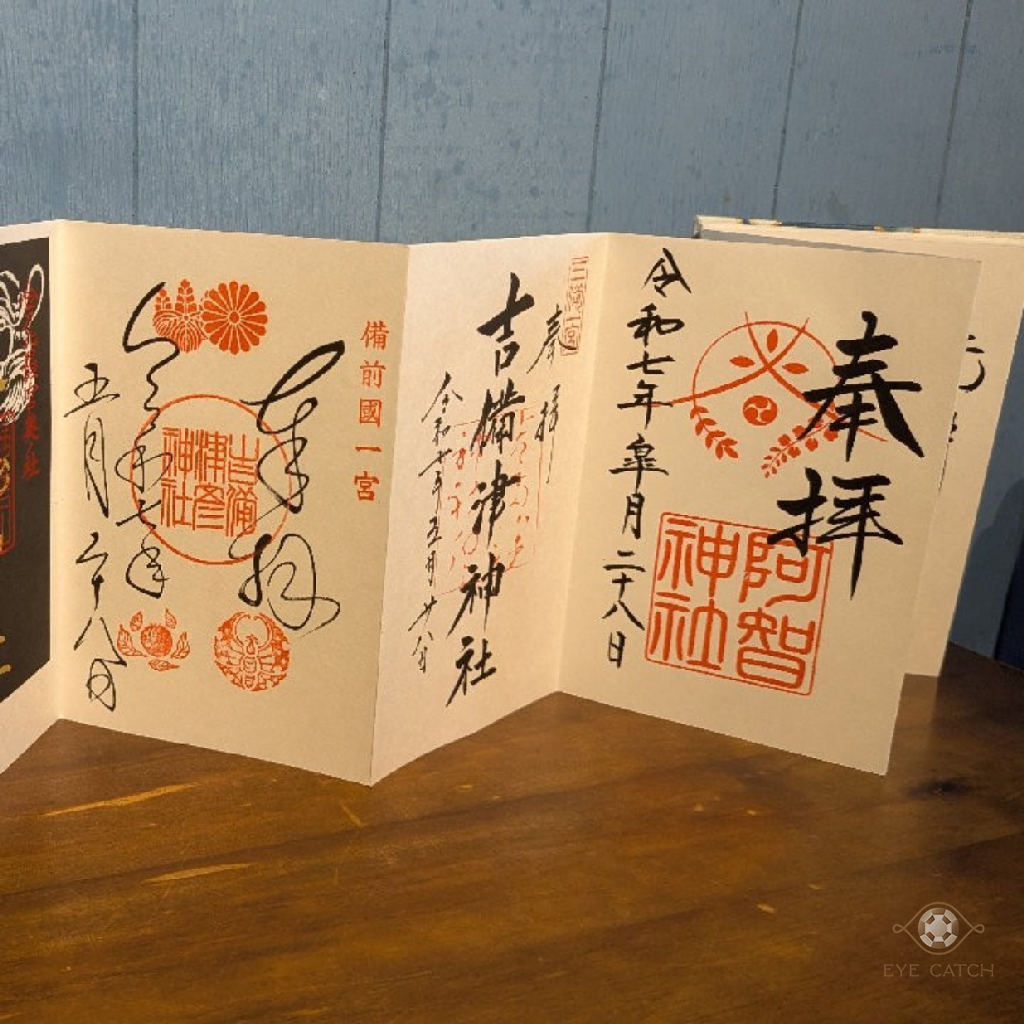 奉拝
阿智
神社
令和七年皐月二十八日
三備一宮
奉拝
吉備津神社
令和七年五月廿八日
備前國一宮
奉拝
吉備
津彦
神社
令和七年
五月二十八日
EYE CATCH